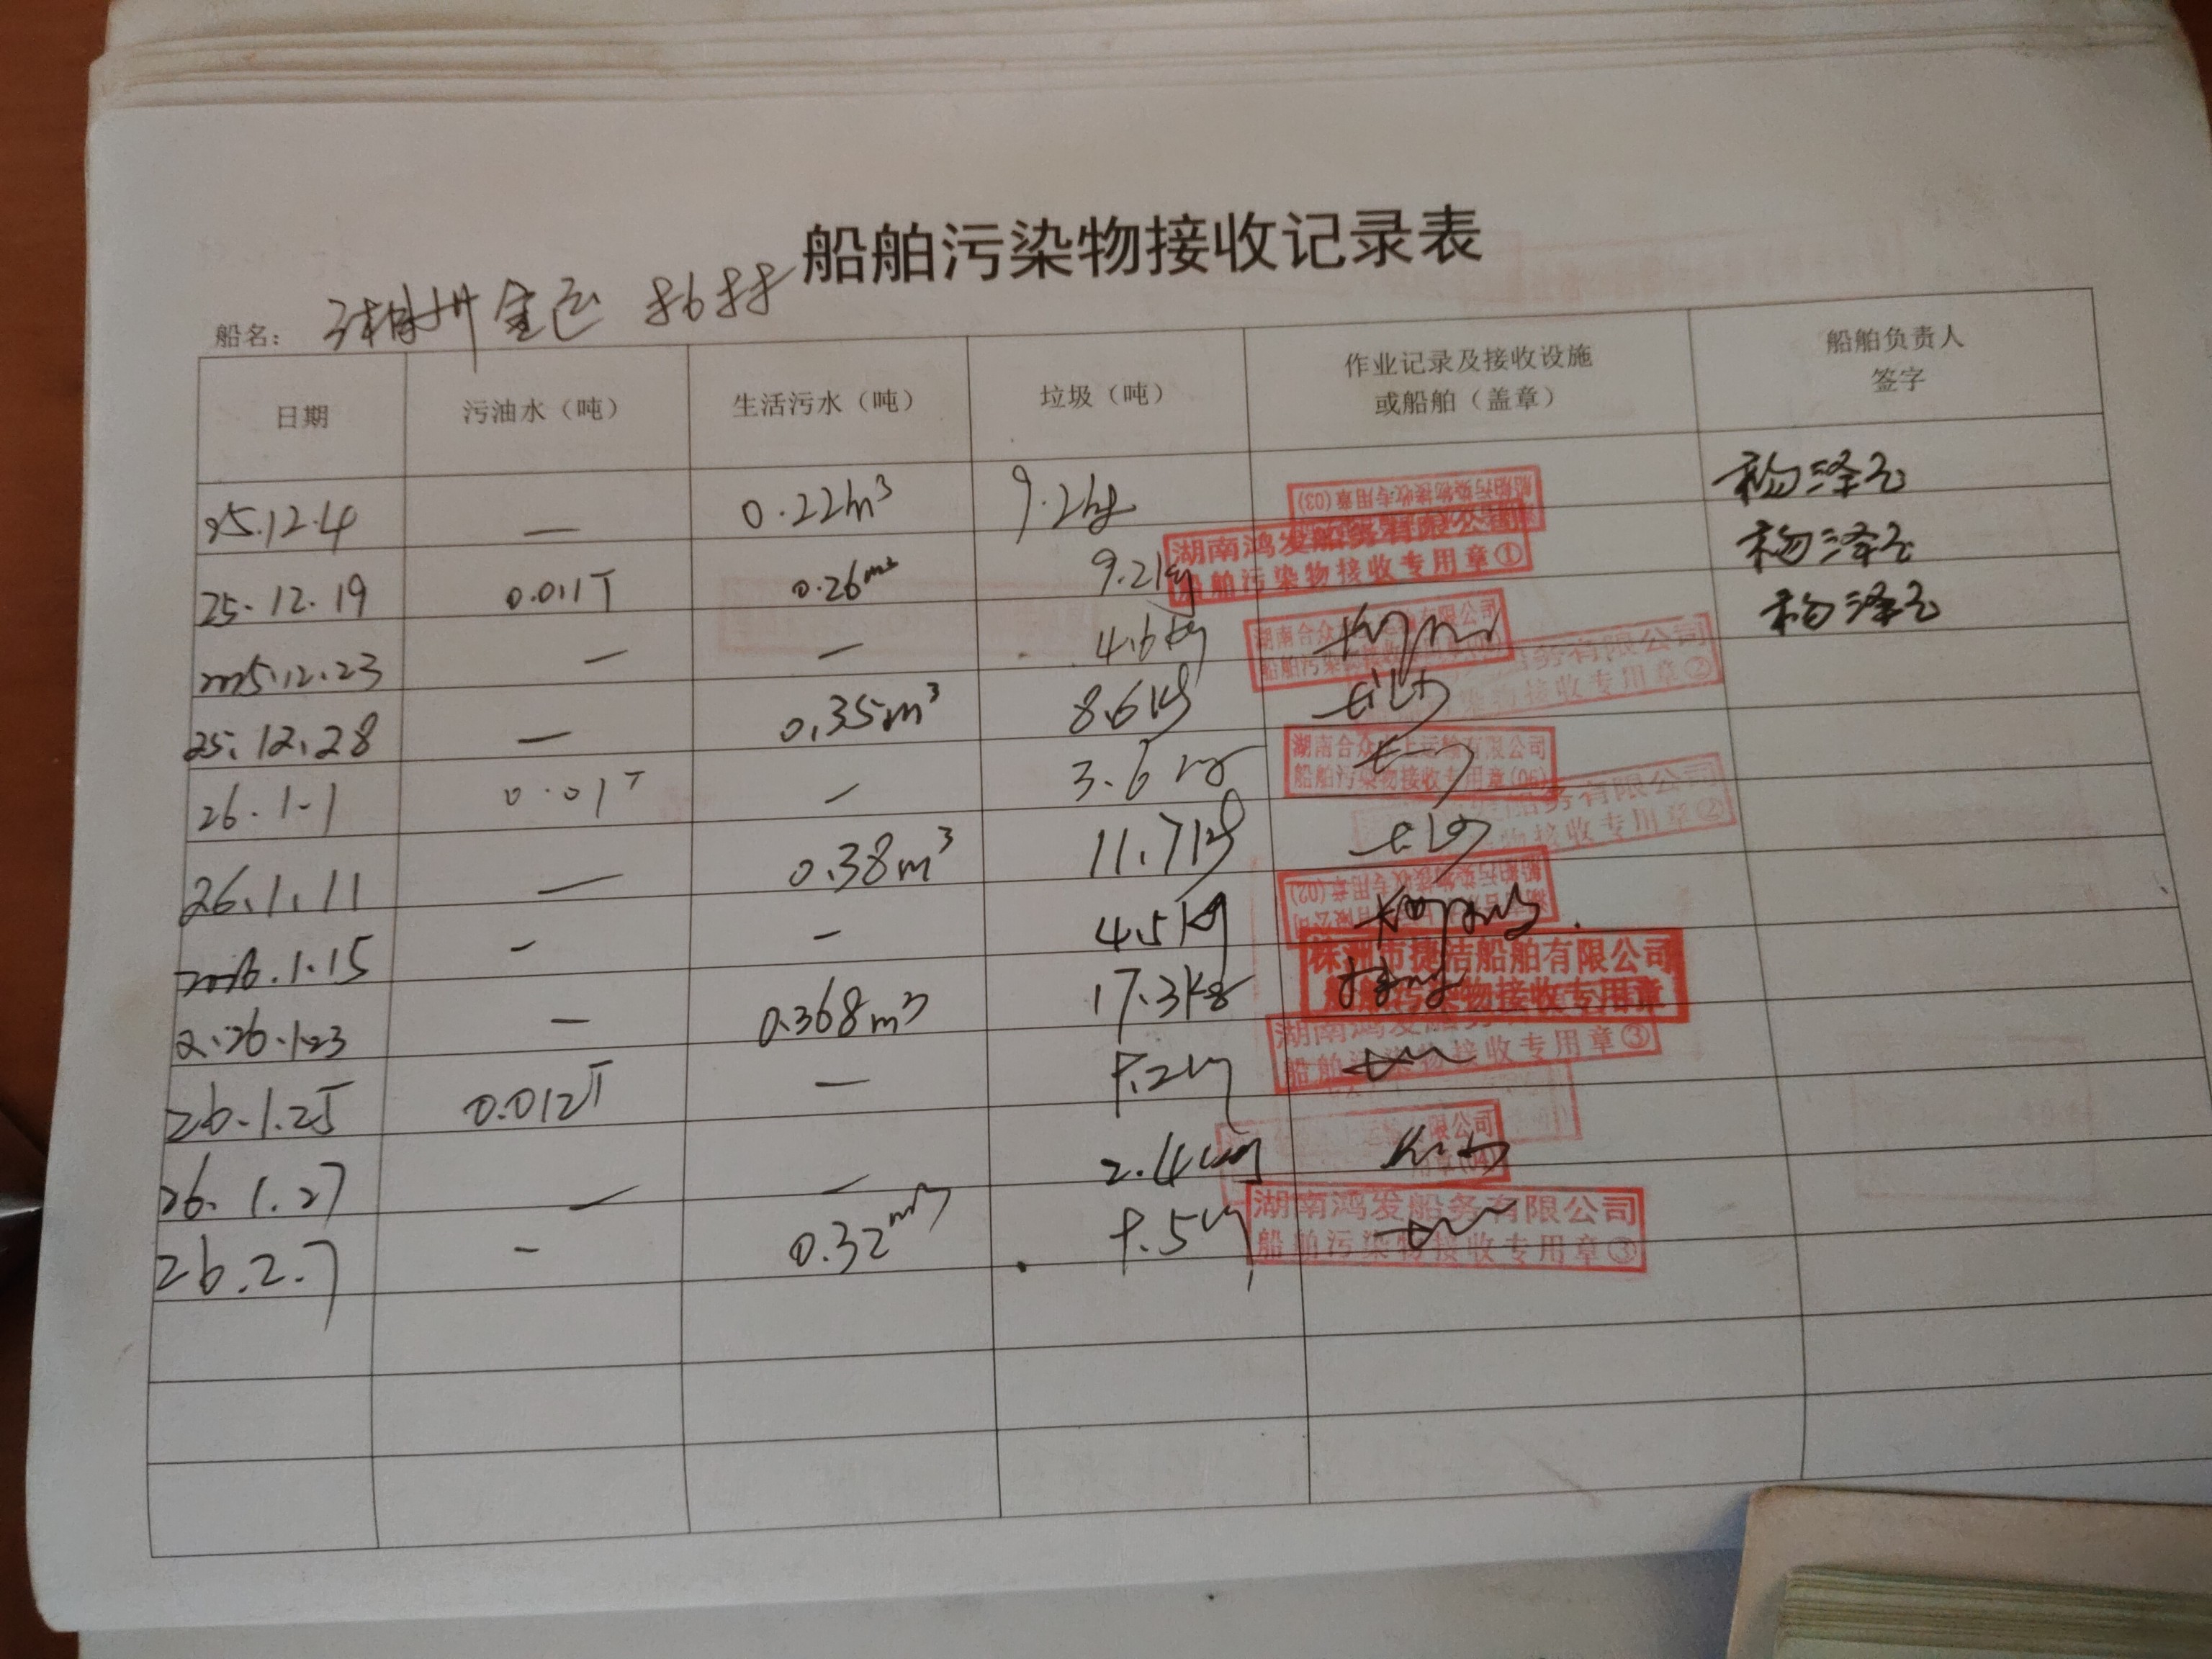 船舶污染物接收记录表
船名：
日期 污油水（吨） 生活污水（吨） 垃圾（吨） 作业记录及接收设施或船舶（盖章） 船舶负责人签字
25.12.4 — 0.22m³ 9.2kg 船舶污染物接收专用章(03) 杨泽
25.12.19 0.011T 0.26 9.2kg 湖南鸿发船务有限公司 船舶污染物接收专用章① 杨泽
2025.12.23 — — 4.6kg 湖南合众 有限公司 船舶污染 杨泽
25.12.28 — 0.35m³ 8.6kg 务有限公司 染物接收专用章②
26.1.1 0.01T — 3.6kg 湖南合众水上运输有限公司 船舶污染物接收专用章(06)
26.1.11 — 0.38m³ 11.7kg 务有限公司 物接收专用章②
2026.1.15 - - 4.5kg 船舶污染物接收专用章(02)
26.1.23 — 0.368m³ 17.3kg 株洲市捷洁船舶有限公司 船舶污染物接收专用章
26.1.25 0.012T — 湖南鸿发船务 船舶污染物接收专用章③
26.1.27 — — 2.4kg 运输有限公司 用章(04)
26.2.7 - 0.32 湖南鸿发船务有限公司 船舶污染物接收专用章③